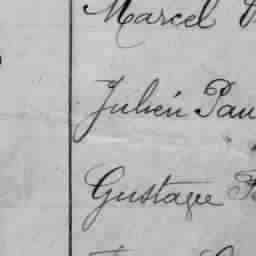 Marcel
Julien Pau
Gustave